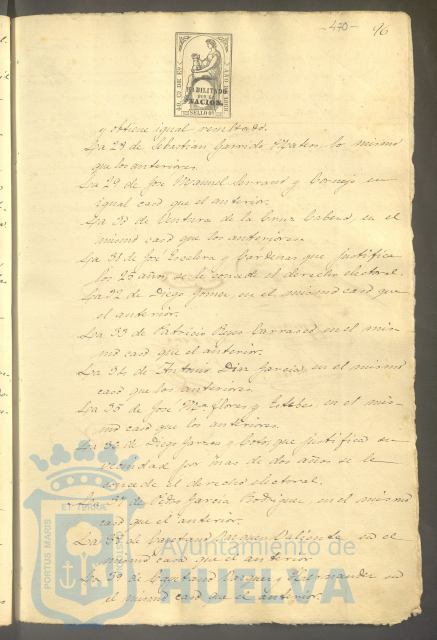 -470- 96
HABILITADO
POR LA
NACION.
SELLO 9º
y obtiene igual resultado.
La 28 de Sebastian Garrido Mateo, lo mismo
que los anteriores.
La 29 de José Manuel Serrano y Cornejo en
igual caso que el anterior.
La 30 de Ventura de la Cruz Cabera, en el
mismo caso que los anteriores.
La 31 de José Escolera y Cárdenas que justifica
los 25 años, se le concede el derecho electoral.
La 32 de Diego Gomez, en el mismo caso que
el anterior.
La 33 de Patricio Reyes Carrasco, en el mis-
mo caso que el anterior.
La 34 de Antonio Diaz Garcia, en el mismo
caso que los anteriores.
La 35 de José Mª Flores y Estebez, en el mis-
mo caso que los anteriores.
La 36 de Diego Garzon y Coto, que justifica su
vecindad por mas de dos años se le
concede el derecho electoral.
La 37 de Pedro Garcia Rodriguez, en el mismo
caso que el anterior.
La 38 de Cayetano Vazquez Valiente, en el
mismo caso que el anterior.
La 39 de Cayetano Vazquez y Hernandez en
el mismo caso que el anterior.
PORTUS MARIS
ET TERRÆ
Ayuntamiento de
HUELVA